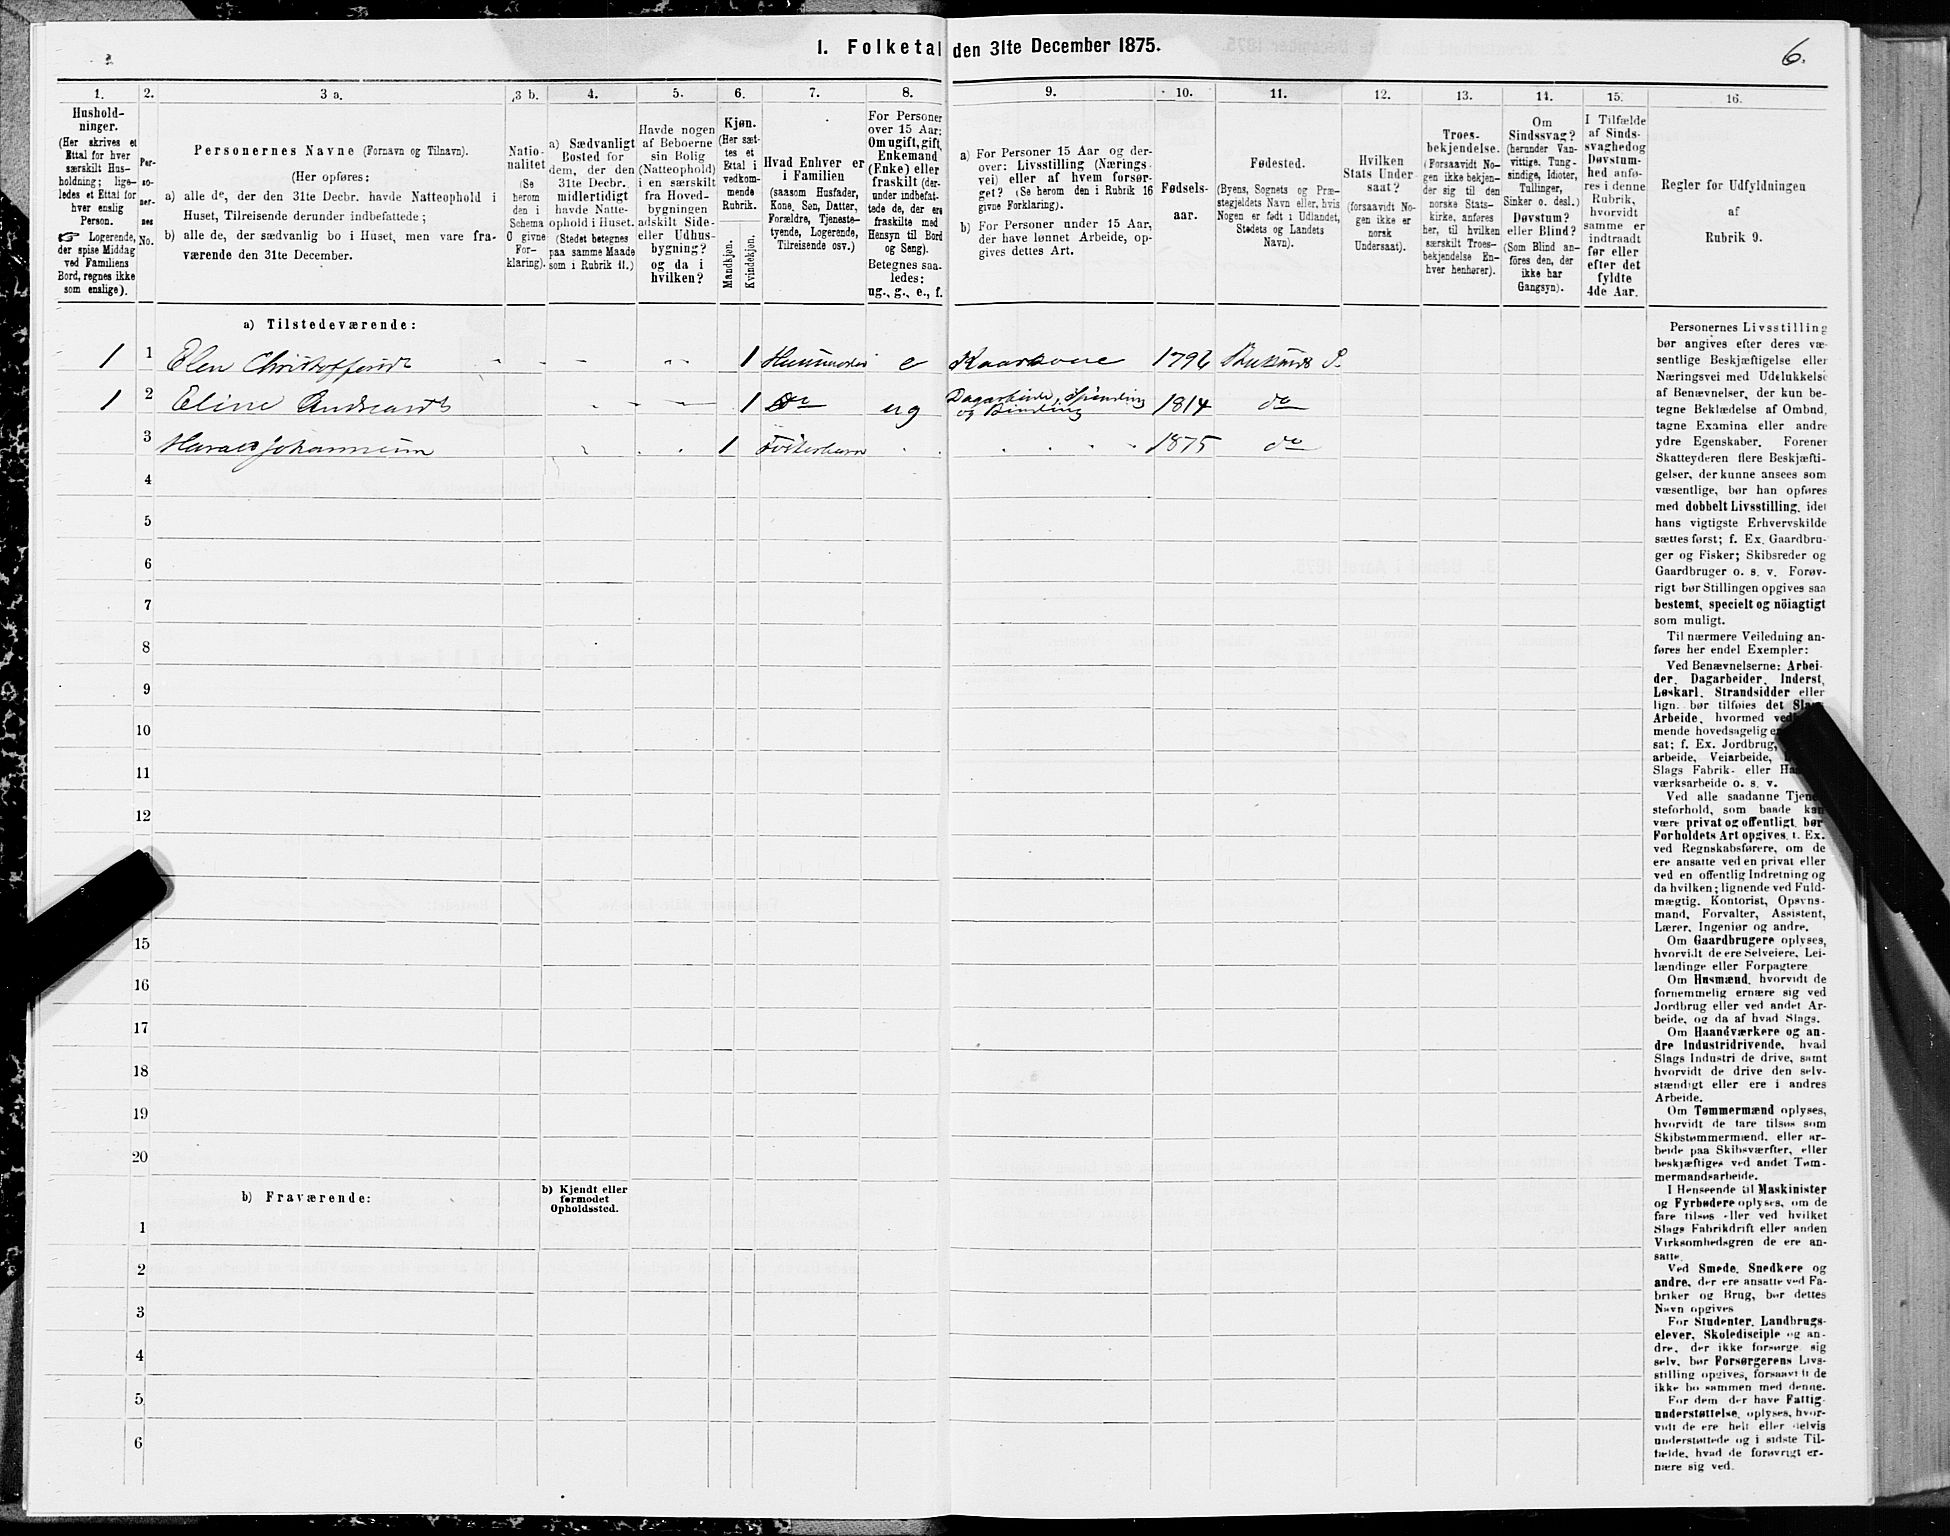 1. Folketal den 31te December 1875.
6.
1. 2. 3 a. 3 b. 4. 5. 6. 7. 8. 9. 10. 11. 12. 13. 14. 15. 16.
Hushold-
ninger.
(Her skrives et
Ettal for hver
særskilt Hus-
holdning; lige-
ledes et Ettal for
hver enslig
Person.
☞ Logerende,
der spise Middag
ved Familiens
Bord, regnes ikke
som enslige).
Per-
so-
ner-
nes
No.
Personernes Navne (Fornavn og Tilnavn).
(Her opføres:
a) alle de, der den 31te Decbr. havde Natteophold i
Huset, Tilreisende derunder indbefattede;
b) alle de, der sædvanlig bo i Huset, men vare fra-
værende den 31te December.
Natio-
nalitet
(Se
herom
den i
Schema
O givne
For-
klaring).
a) Sædvanligt
Bosted for
dem, der den
31te Decbr.
midlertidigt
havde Natte-
ophold i Huset.
(Stedet betegnes
paa samme Maade
som i Rubrik 11.)
Havde nogen
af Beboerne
sin Bolig
(Natteophold)
i en særskilt
fra Hoved-
bygningen
adskilt Side-
eller Udhus-
bygning?
og da i
hvilken?
Kjøn.
(Her sæt-
tes et
Ettal i
vedkom-
mende
Rubrik.
Mandkjøn.
Kvindekjøn.
Hvad Enhver er
i Familien
(saasom Husfader,
Kone, Søn, Datter,
Forældre, Tjeneste-
tyende, Logerende,
Tilreisende osv.)
For Personer
over 15 Aar:
Om ugift, gift,
Enkemand
(Enke) eller
fraskilt (der-
under indbefat-
tede de, der ere
fraskilte med
Hensyn til Bord
og Seng).
Betegnes saa-
ledes:
ug., g., e., f.
a) For Personer 15 Aar og der-
over: Livsstilling (Nærings-
vei) eller af hvem forsør-
get? (Se herom den i Rubrik 16
givne Forklaring).
b) For Personer under 15 Aar,
der have lønnet Arbeide, op-
gives dettes Art.
Fødsels-
aar.
Fødested.
(Byens, Sognets og Præ-
stegjeldets Navn eller, hvis
Nogen er født i Udlandet,
Stedets og Landets
Navn).
Hvilken
Stats Under
saat?
(forsaavidt No-
gen ikke er
norsk
Undersaat).
Troes-
bekjendelse.
(Forsaavidt No-
gen ikke bekjen-
der sig til den
norske Stats-
kirke, anføres
her, til hvilken
særskilt Troes-
bekjendelse En-
hver henhører).
Om
Sindssvag?
(herunder Van-
vittige, Tung-
sindige, Idioter,
Tullinger,
Sinker o. desl.)
Døvstum?
eller Blind?
(Som Blind an-
føres den, der
ikke har
Gangsyn).
I Tilfælde
af Sinds-
svaghed og
Døvstum-
hed anfø-
res i denne
Rubrik,
hvorvidt
samme er
indtraadt
før eller
efter det
fyldte
4de Aar.
Regler for Udfyldningen
af
Rubrik 9.
a) Tilstedeværende:
1 1 Elen 1 e 1796
1 2 Eline 1 Do ug Spinding og Binding 1814 do
3 1 1875 do
4
5
6
7
8
9
10
11
12
15
16
17
18
19
20
b) Fraværende:
b) Kjendt eller
formodet
Opholdssted.
1
2
3
4
5
6
Personernes Livsstilling
bør angives efter deres væ-
sentlige Beskjæftigelse eller
Næringsvei med Udelukkelse
af Benævnelser, der kun be-
tegne Beklædelse af Ombud,
tagne Examina eller andre
ydre Egenskaber. Forener
Skatteyderen flere Beskjæfti-
gelser, der kunne ansees som
væsentlige, bør han opføres
med dobbelt Livsstilling, idet
hans vigtigste Erhvervskilde
sættes først; f. Ex. Gaardbru-
ger og Fisker; Skibsreder og
Gaardbruger o. s. v. Forøv-
rigt bør Stillingen opgives saa
bestemt, specielt og nöiagtigt
som muligt.
Til nærmere Veiledning an-
føres her endel Exempler:
Ved Benævnelserne: Arbei-
der, Dagarbeider, Inderst,
Løskarl, Strandsidder eller
lign. bør tilføies det
Arbeide, hvormed
mende hovedsagelig
sat; f. Ex. Jordbrug,
arbeide, Veiarbeide,
Slags Fabrik- eller
værksarbeide o. s. v.
Ved alle saadanne Tjene-
steforhold, som baade kan
være privat og offentligt, bør
Forholdets Art opgives, f. Ex.
ved Regnskabsførere, om de
ere ansatte ved en privat eller
ved en offentlig Indretning og
da hvilken; lignende ved Fuld-
mægtig, Kontorist, Opsyns-
mand, Forvalter, Assistent,
Lærer, Ingeniør og andre.
Om Gaardbrugere oplyses,
hvorvidt de ere Selveiere, Lei-
lændinge eller Forpagtere
Om Husmænd, hvorvidt de
fornemmelig ernære sig ved
Jordbrug eller ved andet Ar-
beide, og da af hvad Slags.
Om Haandværkere og an-
dre Industridrivende, hvad
Slags Industri de drive, samt
hvorvidt de drive den selv-
stændigt eller ere i andres
Arbeide.
Om Tømmermænd oplyses,
hvorvidt de fare tilsøs som
Skibstømmermænd, eller ar-
beide paa Skibsværfter, eller
beskjæftiges ved andet Tøm-
mermandsarbeide.
I Henseende til Maskinister
og Fyrbødere oplyses, om de
fare tilsøs eller ved hvilket
Slags Fabrikdrift eller anden
Virksomhedsgren de ere an-
satte.
Ved Smede, Snedkere og
andre, der ere ansatte ved Fa-
briker og Brug, bør dettes
Navn opgives
For Studenter, Landbrugs-
elever, Skoledisciple og an-
dre, der ikke forsørge sig
selv, bør Forsørgerens Livs-
stilling opgives, forsaavidt de
ikke bo sammen med denne.
For dem, der have Fattig-
understøttelse, oplyses, hvor-
vidt de ere helt eller delvis
understøttede og i sidste Til-
fælde, hvad de forøvrigt er-
nære sig ved.